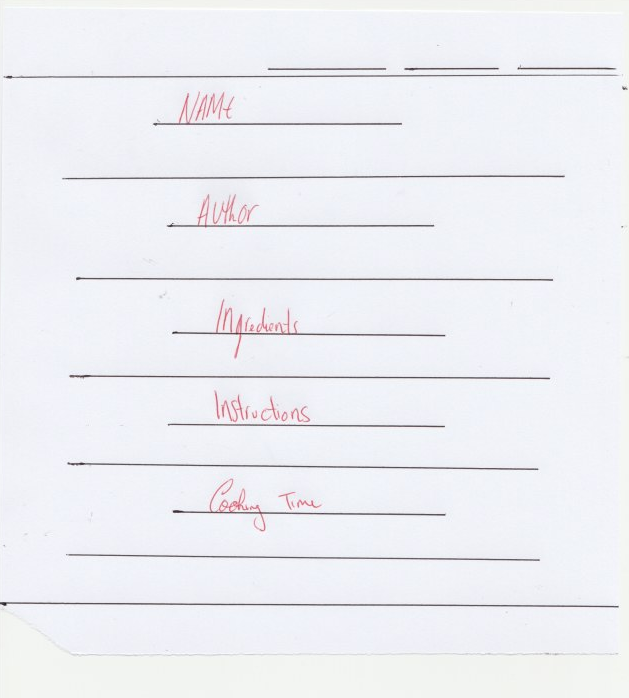 NAMe
Author
Ingredients
Instructions
Cooking Time